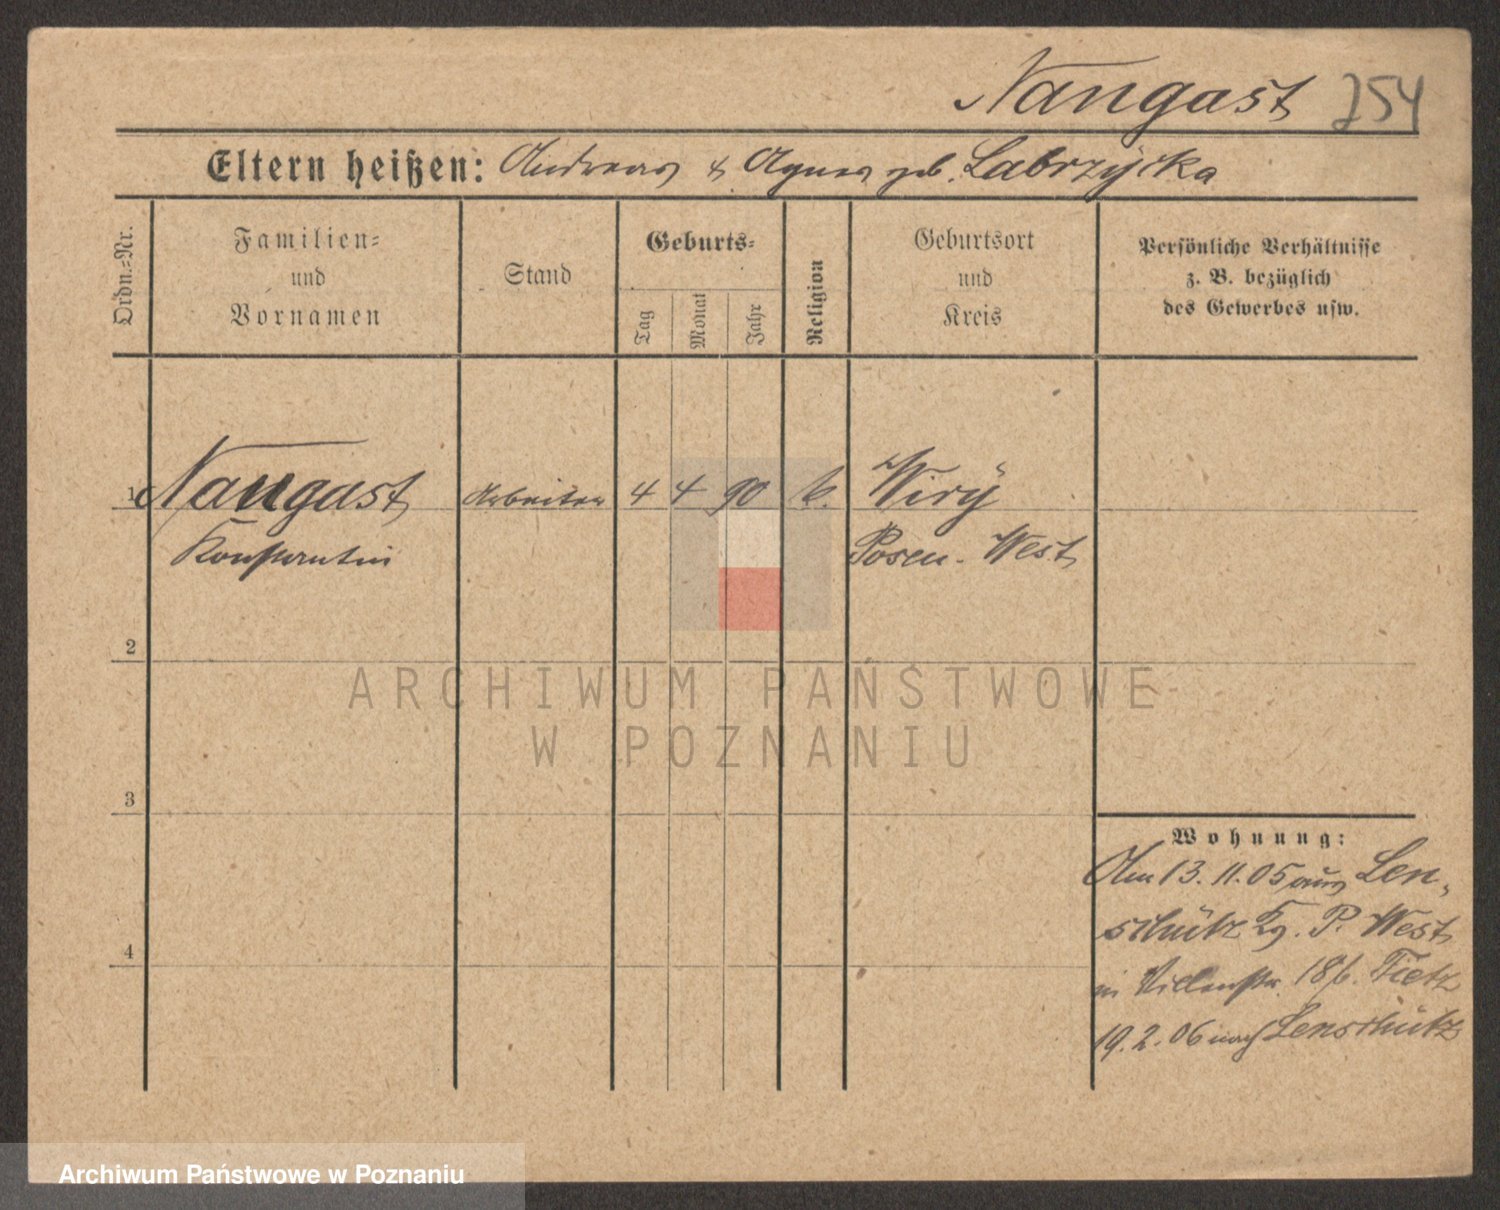 Nangast 254
Eltern heißen: Andreas & Agnes geb. Labrzycka
Ordn.-Nr.
Familien-
und
Vornamen
Stand
Geburts-
Tag
Monat
Jahr
Religion
Geburtsort
und
Kreis
Persönliche Verhältnisse
z. B. bezüglich
des Gewerbes usw.
1 Nangast Arbeiter 4 4 90 k. Wiry
Konstantin Posen-West
2
3
4
Wohnung:
Am 13.11.05 aus Len-
schütz Kr. P. West
in 18 b. Tietz
19.2.06 nach Lenschütz
ARCHIWUM PAŃSTWOWE
W POZNANIU
Archiwum Państwowe w Poznaniu